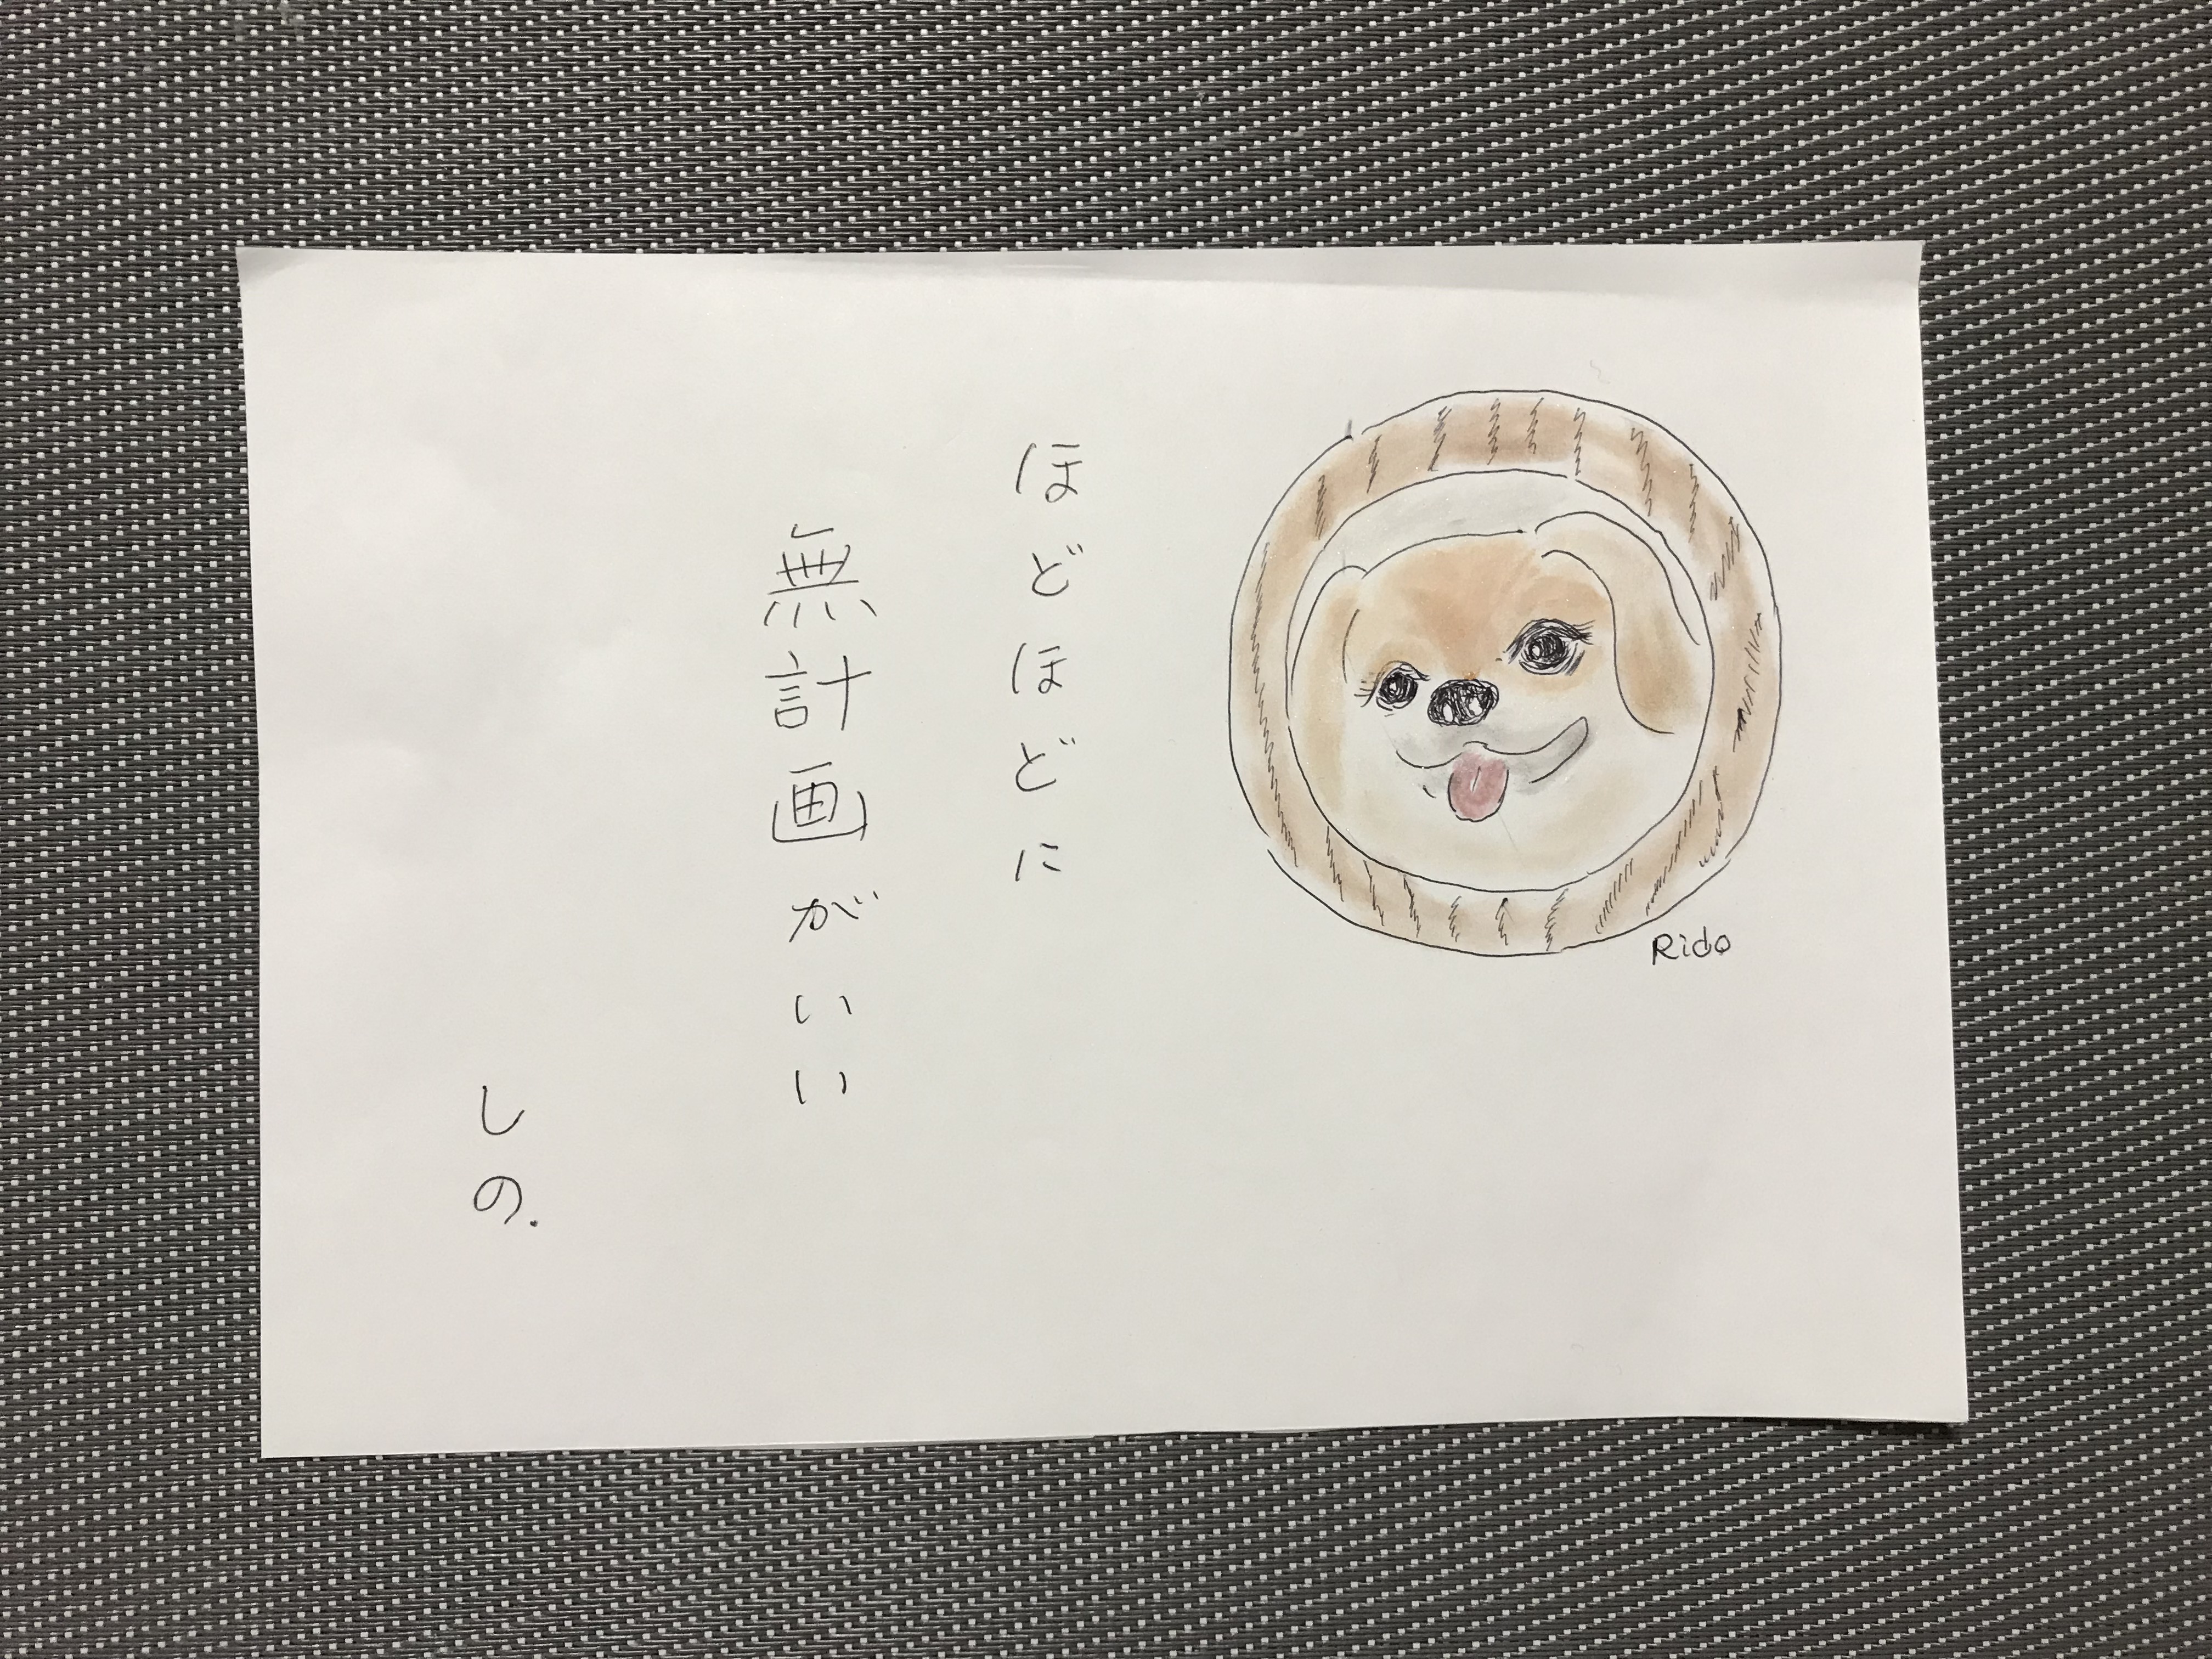 ほどほどに
無計画がいい
しの.
Rido